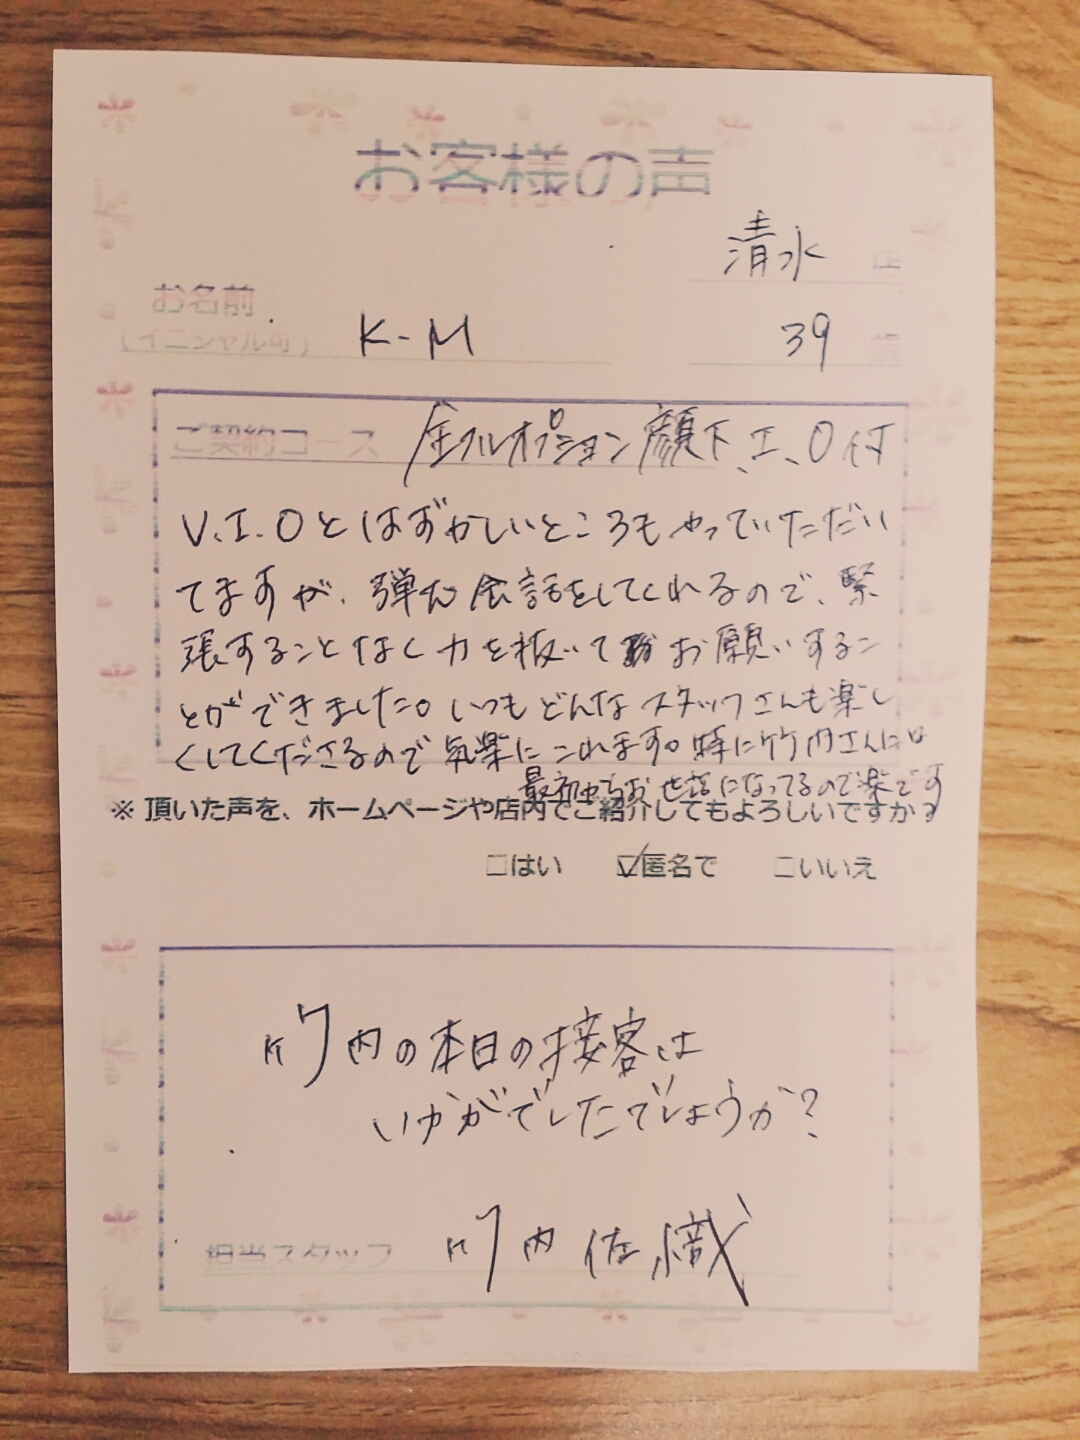 お客様の声
清水 店
お名前
(イニシャル可) K-M 39 歳
ご契約コース 全フルオプション顔下、I、O付
V、I、Oとはずかしいところもやっていただい
てますが、弾む会話をしてくれるので、緊
張することなく力を抜いてお願いするこ
とができました。いつもどんなスタッフさんも楽し
くしてくださるので気楽にこれます。特に竹内さんには
最初からお世話になってるので楽です
※頂いた声を、ホームページや店内でご紹介してもよろしいですか？
□はい ☑匿名で □いいえ
竹内の本日の接客は
いかがでしたでしょうか？
担当スタッフ 竹内佐織